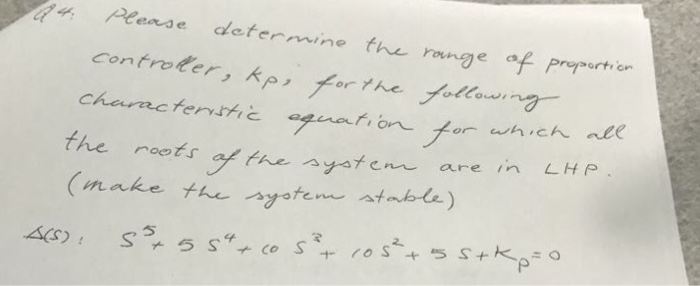 Q4. Please determine the range of proportion
controller, Kp, for the following
characteristic equation for which all
the roots of the system are in LHP.
(make the system stable)
Δ(S): S⁵+ 5 S⁴+ 10 S³+ 10 S²+ 5 S+Kp=0